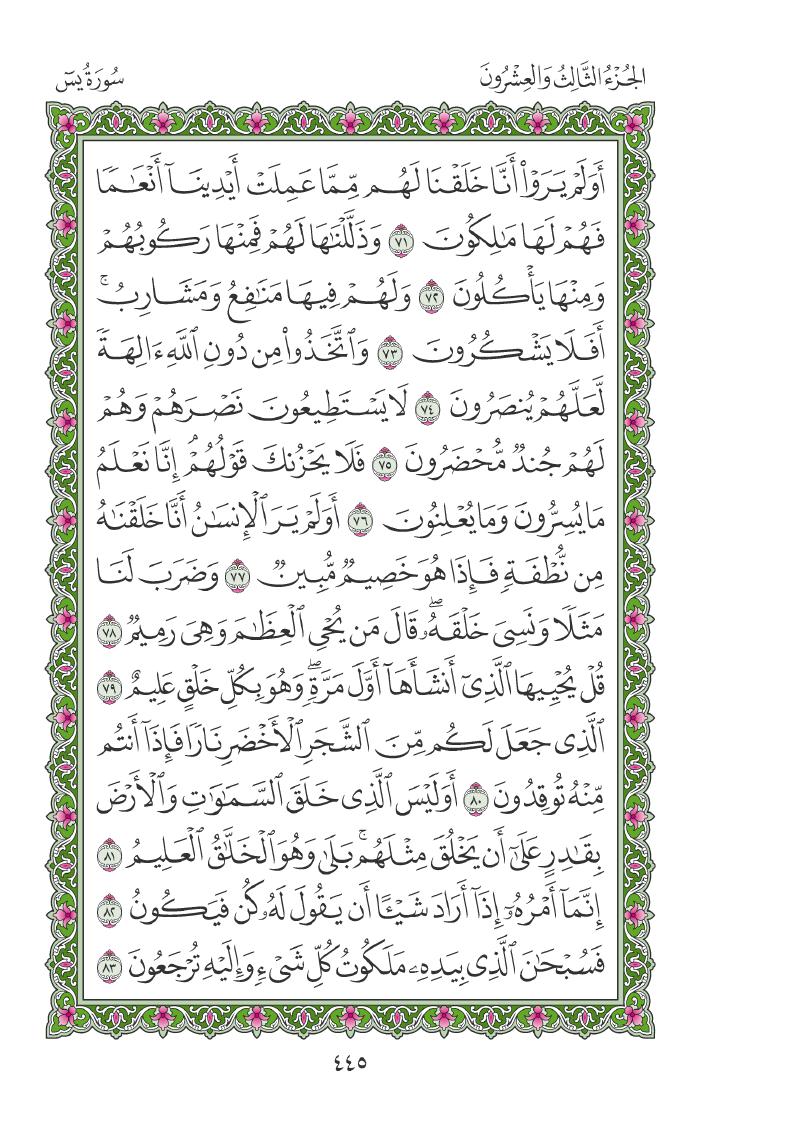 الجُزْءُ الثَّالِثُ وَالعِشْرُونَ
سُورَةُ يسٓ
أَوَلَمْ يَرَوْا۟ أَنَّا خَلَقْنَا لَهُم مِّمَّا عَمِلَتْ أَيْدِينَآ أَنْعَٰمًا
فَهُمْ لَهَا مَٰلِكُونَ ٧١ وَذَلَّلْنَٰهَا لَهُمْ فَمِنْهَا رَكُوبُهُمْ
وَمِنْهَا يَأْكُلُونَ ٧٢ وَلَهُمْ فِيهَا مَنَٰفِعُ وَمَشَارِبُ ۚ
أَفَلَا يَشْكُرُونَ ٧٣ وَٱتَّخَذُوا۟ مِن دُونِ ٱللَّهِ ءَالِهَةً
لَّعَلَّهُمْ يُنصَرُونَ ٧٤ لَا يَسْتَطِيعُونَ نَصْرَهُمْ وَهُمْ
لَهُمْ جُندٌ مُّحْضَرُونَ ٧٥ فَلَا يَحْزُنكَ قَوْلُهُمْ ۘ إِنَّا نَعْلَمُ
مَا يُسِرُّونَ وَمَا يُعْلِنُونَ ٧٦ أَوَلَمْ يَرَ ٱلْإِنسَٰنُ أَنَّا خَلَقْنَٰهُ
مِن نُّطْفَةٍ فَإِذَا هُوَ خَصِيمٌ مُّبِينٌ ٧٧ وَضَرَبَ لَنَا
مَثَلًا وَنَسِىَ خَلْقَهُۥ ۖ قَالَ مَن يُحْىِ ٱلْعِظَٰمَ وَهِىَ رَمِيمٌ ٧٨
قُلْ يُحْيِيهَا ٱلَّذِىٓ أَنشَأَهَآ أَوَّلَ مَرَّةٍ ۖ وَهُوَ بِكُلِّ خَلْقٍ عَلِيمٌ ٧٩
ٱلَّذِى جَعَلَ لَكُم مِّنَ ٱلشَّجَرِ ٱلْأَخْضَرِ نَارًا فَإِذَآ أَنتُم
مِّنْهُ تُوقِدُونَ ٨٠ أَوَلَيْسَ ٱلَّذِى خَلَقَ ٱلسَّمَٰوَٰتِ وَٱلْأَرْضَ
بِقَٰدِرٍ عَلَىٰٓ أَن يَخْلُقَ مِثْلَهُم ۚ بَلَىٰ وَهُوَ ٱلْخَلَّٰقُ ٱلْعَلِيمُ ٨١
إِنَّمَآ أَمْرُهُۥٓ إِذَآ أَرَادَ شَيْـًٔا أَن يَقُولَ لَهُۥ كُن فَيَكُونُ ٨٢
فَسُبْحَٰنَ ٱلَّذِى بِيَدِهِۦ مَلَكُوتُ كُلِّ شَىْءٍ وَإِلَيْهِ تُرْجَعُونَ ٨٣
٤٤٥